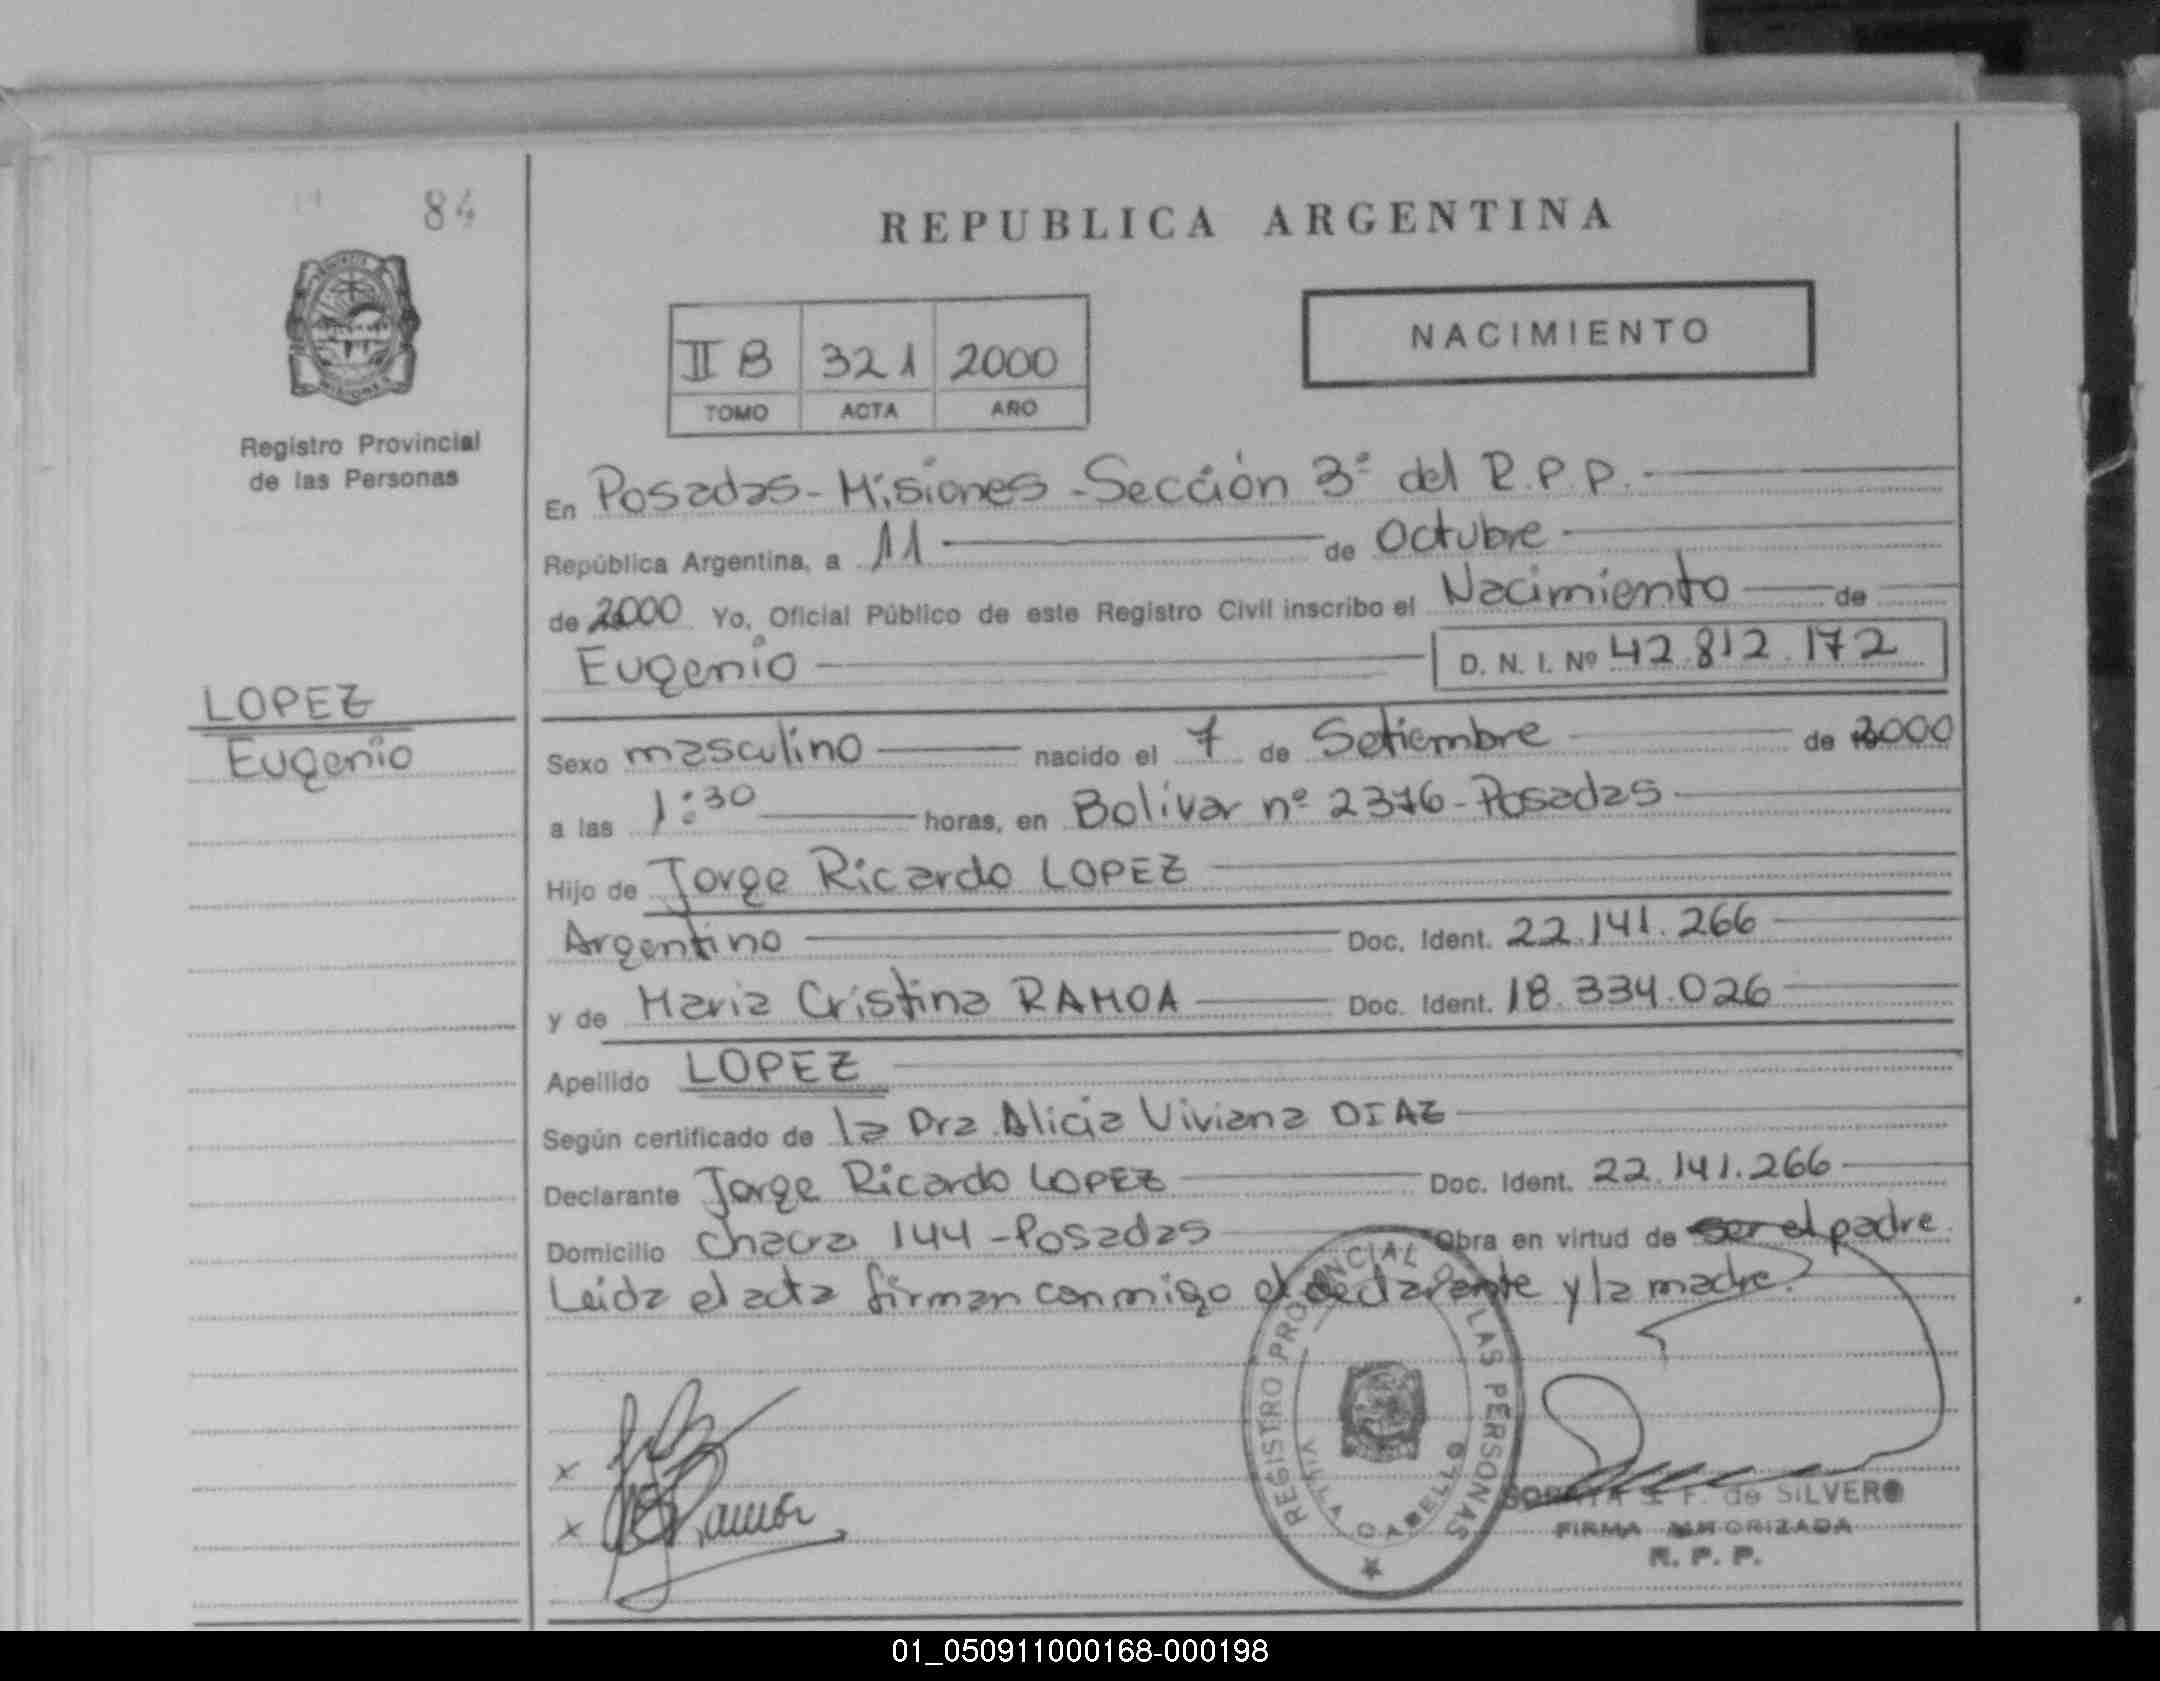 84
REPUBLICA ARGENTINA
NACIMIENTO
II B 321 2000
TOMO ACTA AÑO
Registro Provincial
de las Personas
En Posadas - Misiones - Sección 3ª del R.P.P.
República Argentina, a 11 de Octubre
de 2000 Yo, Oficial Público de este Registro Civil inscribo el Nacimiento de
Eugenio D. N. I. Nº 42.812.172
LOPEZ
Eugenio
Sexo masculino nacido el 7 de Setiembre de 2000
a las 1:30 horas, en Bolivar nº 2376 - Posadas
Hijo de Jorge Ricardo LOPEZ
Argentino Doc. Ident. 22.141.266
y de Maria Cristina RAMOA Doc. Ident. 18.334.026
Apellido LOPEZ
Según certificado de la Dra Alicia Viviana DIAZ
Declarante Jorge Ricardo LOPEZ Doc. Ident. 22.141.266
Domicilio chacra 144 - Posadas Obra en virtud de ser el padre.
Leida el acta firman conmigo el declarante y la madre.
REGISTRO PROVINCIAL DE LAS PERSONAS
VILLA CABELLO
F. de SILVERO
FIRMA AUTORIZADA
R. P. P.
01_050911000168-000198